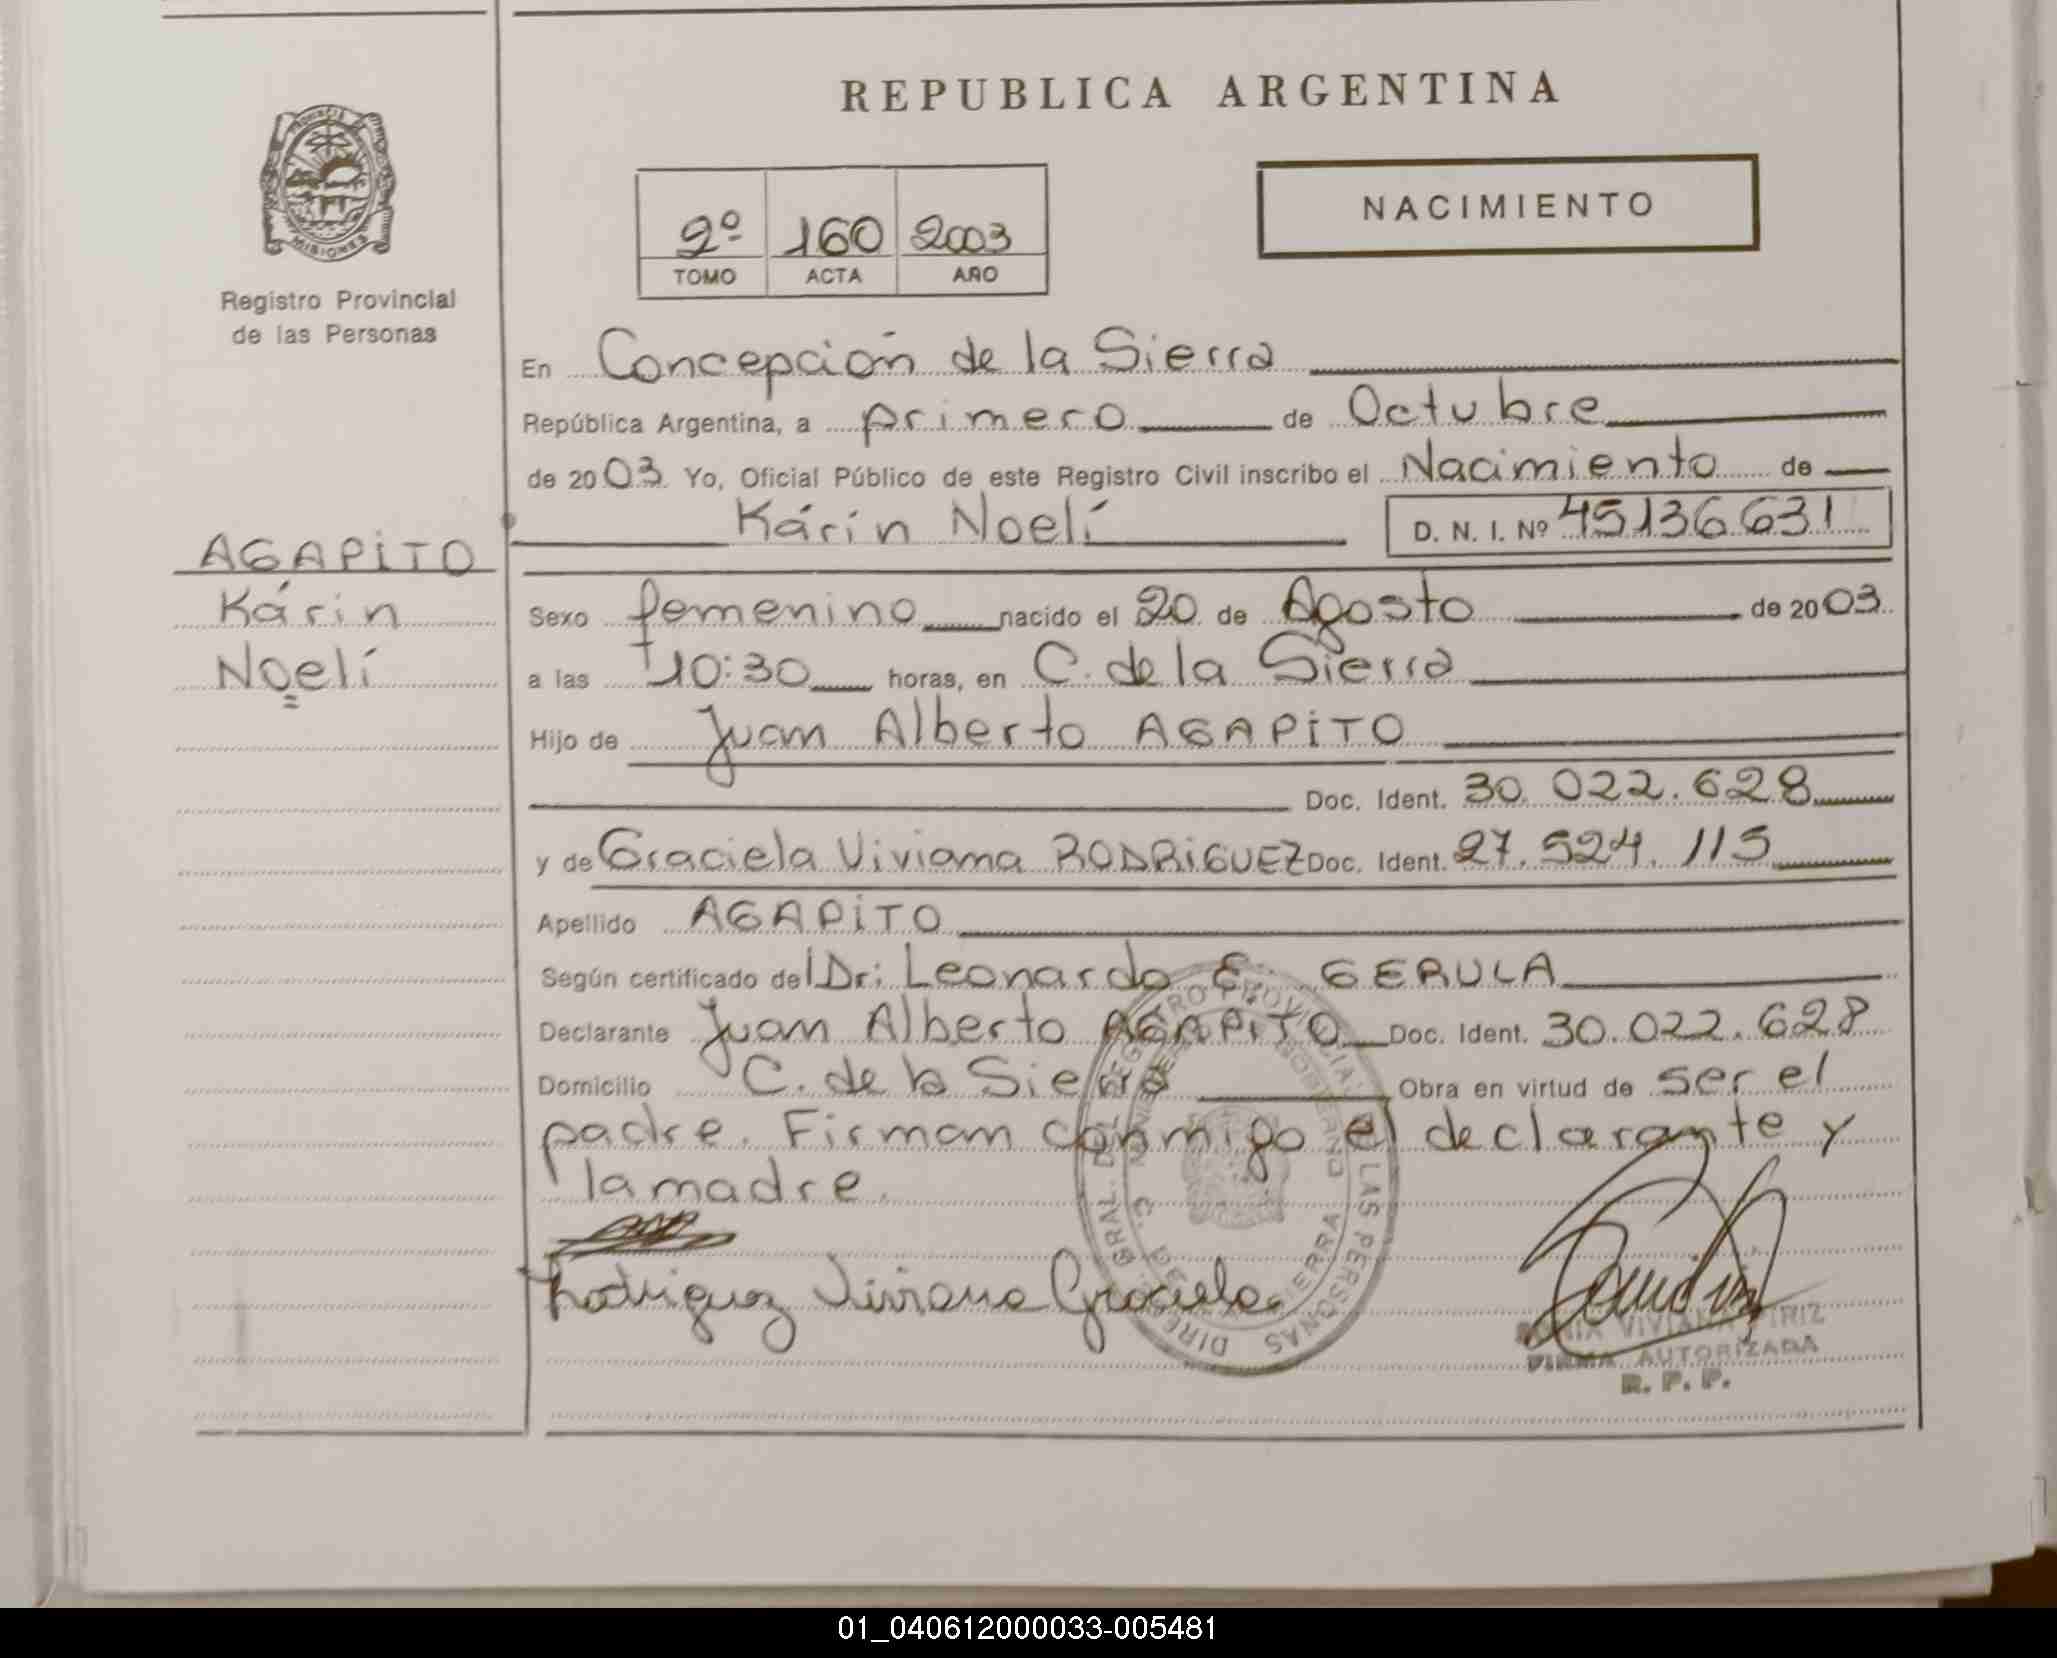 REPUBLICA ARGENTINA
PROVINCIA DE
MISIONES
Registro Provincial
de las Personas
2º 160 2003
TOMO ACTA AÑO
NACIMIENTO
En Concepción de la Sierra
República Argentina, a primero de Octubre
de 2003 Yo, Oficial Público de este Registro Civil inscribo el Nacimiento de
Kárin Noelí D. N. I. Nº 45136.631
AGAPITO
Kárin
Noelí
Sexo femenino nacido el 20 de Agosto de 2003
a las 10:30 horas, en C. de la Sierra
Hijo de Juan Alberto AGAPITO
Doc. Ident. 30.022.628
y de Graciela Viviana RODRIGUEZ Doc. Ident. 27.524.115
Apellido AGAPITO
Según certificado del Dr: Leonardo E. GERULA
Declarante Juan Alberto AGAPITO Doc. Ident. 30.022.628
Domicilio C. de la Sierra Obra en virtud de ser el
padre. Firman conmigo el declarante y
la madre.
Rodriguez Viviana Graciela
DIREC. GRAL. DEL REGISTRO PROVINCIAL DE LAS PERSONAS
C. DE SIERRA
VIVIANA PIRIZ
FIRMA AUTORIZADA
R. P. P.
01_040612000033-005481